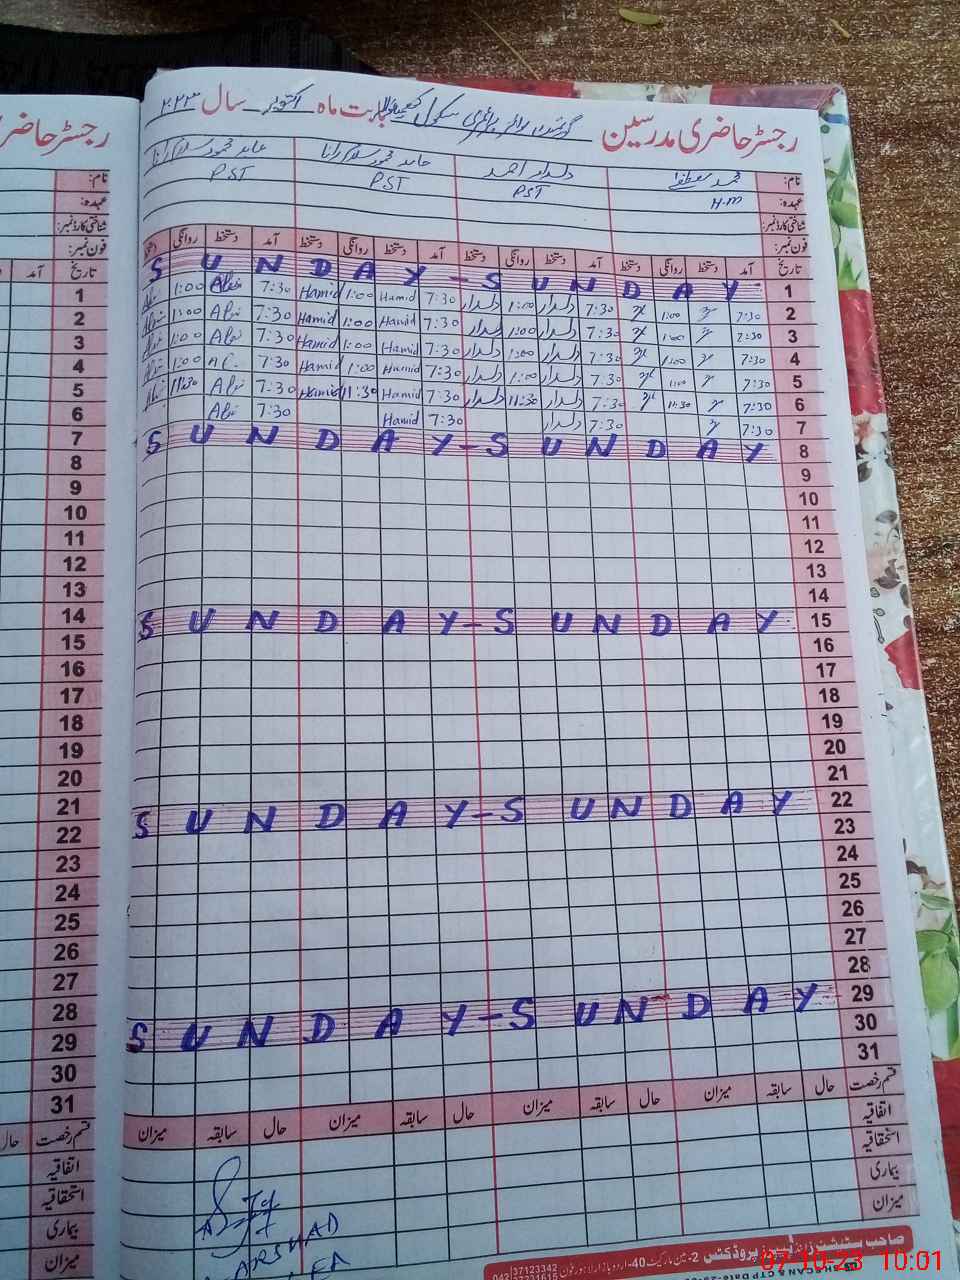 رجسٹر حاضری مدرسین گورنمنٹ بوائز پرائمری سکول بابت ماہ اکتوبر سال ۲۰۲۳
نام: محمد مصطفیٰ دلدار احمد حامد محمود سلام رانا عابد محمود سلام رانا
عہدہ: H.M PST PST PST
شناختی کارڈ نمبر:
فون نمبر:
تاریخ آمد دستخط روانگی دستخط آمد دستخط روانگی دستخط آمد دستخط روانگی دستخط آمد دستخط روانگی دستخط
1 S U N D A Y - S U N D A Y
2 7:30 1:00 7:30 دلدار 1:00 دلدار 7:30 Hamid 1:00 Hamid 7:30 1:00
3 7:30 1:00 7:30 دلدار 1:00 دلدار 7:30 Hamid 1:00 Hamid 7:30 1:00
4 7:30 1:00 7:30 دلدار 1:00 دلدار 7:30 Hamid 1:00 Hamid 7:30 1:00
5 7:30 1:00 7:30 دلدار 1:00 دلدار 7:30 Hamid 1:00 Hamid 7:30 1:00
6 7:30 11:30 7:30 دلدار 11:30 دلدار 7:30 Hamid 11:30 Hamid 7:30 11:30
7 7:30 7:30 دلدار 7:30 Hamid 7:30
8 S U N D A Y - S U N D A Y
9
10
11
12
13
14
15 S U N D A Y - S U N D A Y
16
17
18
19
20
21
22 S U N D A Y - S U N D A Y
23
24
25
26
27
28
29 S U N D A Y - S U N D A Y
30
31
قسم رخصت حال سابقہ میزان حال سابقہ میزان حال سابقہ میزان حال سابقہ میزان
اتفاقیہ
استحقاقیہ
بیماری
میزان
ARSHAD
37123342
07-10-23 10:01
رجسٹر حاضری
نام:
عہدہ:
شناختی کارڈ نمبر:
فون نمبر:
تاریخ آمد
1
2
3
4
5
6
7
8
9
10
11
12
13
14
15
16
17
18
19
20
21
22
23
24
25
26
27
28
29
30
31
قسم رخصت حال
اتفاقیہ
استحقاقیہ
بیماری
میزان